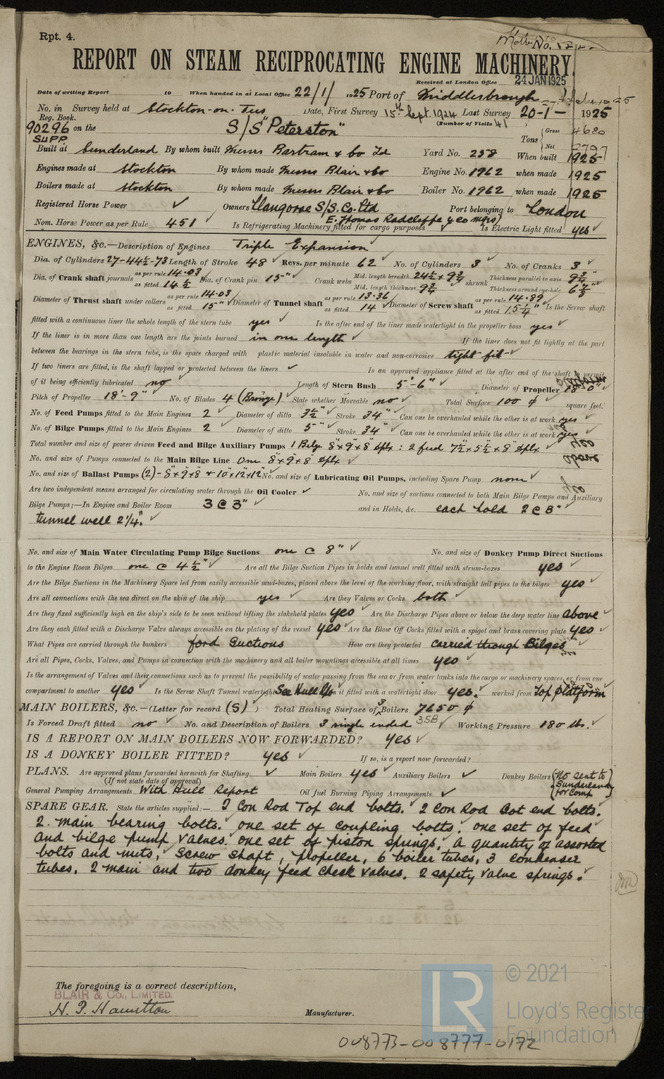 Rpt. 4.
No.
REPORT ON STEAM RECIPROCATING ENGINE MACHINERY.
Received at London Office 24 JAN 1925
Date of writing Report 19 When handed in at Local Office 22/1/1925 Port of Middlesbrough
No. in Survey held at Stockton-on-Tees Date, First Survey 15th Sept. 1924 Last Survey 20-1- 1925
Reg. Book. (Number of Visits 41)
90296 on the S/S "Peterston" Tons Gross 4680
SUPP Net 2797
Built at Sunderland By whom built Messrs Bartram & Co Ld Yard No. 258 When built 1925
Engines made at Stockton By whom made Messrs Blair & Co Engine No. 1962 when made 1925
Boilers made at Stockton By whom made Messrs Blair & Co Boiler No. 1962 when made 1925
Registered Horse Power Owners Llangorse S/S. Co. Ltd Port belonging to London
E. Thomas Radcliffe & Co mgrs)
Nom. Horse Power as per Rule 451 Is Refrigerating Machinery fitted for cargo purposes Is Electric Light fitted yes
ENGINES, &c.—Description of Engines Triple Expansion
Dia. of Cylinders 27-44½-73 Length of Stroke 48 Revs. per minute 62 No. of Cylinders 3 No. of Cranks 3
Dia. of Crank shaft journals as per rule 14.03 as fitted 14½ Dia. of Crank pin 15" Crank webs Mid. length breadth Mid. length thickness shrunk Thickness parallel to axis Thickness around eye-hole
Diameter of Thrust shaft under collars as per rule 14.03 as fitted 15" Diameter of Tunnel shaft as per rule 13.36 as fitted 14 Diameter of Screw shaft as per rule 14.89 as fitted 15¼" Is the Screw shaft
fitted with a continuous liner the whole length of the stern tube yes Is the after end of the liner made watertight in the propeller boss yes
If the liner is in more than one length are the joints burned in one length If the liner does not fit tightly at the part
between the bearings in the stern tube, is the space charged with plastic material insoluble in water and non-corrosive tight fit
If two liners are fitted, is the shaft lapped or protected between the liners Is an approved appliance fitted at the after end of the shaft
of it being efficiently lubricated no Length of Stern Bush 5'-6" Diameter of Propeller
Pitch of Propeller 18'-9" No. of Blades 4 (Bronze) State whether Moveable no Total Surface 100 square feet.
No. of Feed Pumps fitted to the Main Engines 2 Diameter of ditto 3½" Stroke 34" Can one be overhauled while the other is at work yes
No. of Bilge Pumps fitted to the Main Engines 2 Diameter of ditto 5" Stroke 34" Can one be overhauled while the other is at work yes
Total number and size of power driven Feed and Bilge Auxiliary Pumps 1 Bilg 8"×9"×8" dplx : 2 feed 7½"×5½"×8" dplx
No. and size of Pumps connected to the Main Bilge Line One 8"×9"×8" dplx
No. and size of Ballast Pumps (2) - No. and size of Lubricating Oil Pumps, including Spare Pump none
Are two independent means arranged for circulating water through the Oil Cooler No. and size of suctions connected to both Main Bilge Pumps and Auxiliary
Bilge Pumps;—In Engine and Boiler Room 3 @ 3" and in Holds, &c. each hold 2 @ 3"
tunnel well 2¼".
No. and size of Main Water Circulating Pump Bilge Suctions one @ 8" No. and size of Donkey Pump Direct Suctions
to the Engine Room Bilges one @ 4½" Are all the Bilge Suction Pipes in holds and tunnel well fitted with strum-boxes yes
Are the Bilge Suctions in the Machinery Space led from easily accessible mud-boxes, placed above the level of the working floor, with straight tail pipes to the bilges yes
Are all connections with the sea direct on the skin of the ship yes Are they Valves or Cocks both
Are they fixed sufficiently high on the ship's side to be seen without lifting the stokehold plates yes Are the Discharge Pipes above or below the deep water line above
Are they each fitted with a Discharge Valve always accessible on the plating of the vessel yes Are the Blow Off Cocks fitted with a spigot and brass covering plate yes
What Pipes are carried through the bunkers ford suctions How are they protected carried through Bilges
Are all Pipes, Cocks, Valves, and Pumps in connection with the machinery and all boiler mountings accessible at all times yes
Is the arrangement of Valves and their connections such as to prevent the possibility of water passing from the sea or from water tanks into the cargo or machinery spaces, or from one
compartment to another yes Is the Screw Shaft Tunnel watertight See Hull Rpt Is it fitted with a watertight door yes. worked from Top platform
MAIN BOILERS, &c.—(Letter for record (S) ) Total Heating Surface of 3 Boilers 7650
Is Forced Draft fitted no No. and Description of Boilers 3 single ended 358 Working Pressure 180 lbs.
IS A REPORT ON MAIN BOILERS NOW FORWARDED? yes
IS A DONKEY BOILER FITTED? yes If so, is a report now forwarded?
PLANS. Are approved plans forwarded herewith for Shafting Main Boilers yes Auxiliary Boilers Donkey Boilers (No sent to Sunderland for comp)
(If not state date of approval)
General Pumping Arrangements With Hull Report Oil fuel Burning Piping Arrangements
SPARE GEAR. State the articles supplied:— 2 Con Rod Top end bolts. 2 Con Rod Bot end bolts.
2 main bearing bolts. one set of coupling bolts. one set of feed
and bilge pump valves. one set of piston springs, a quantity of assorted
bolts and nuts, screw shaft, propeller, 6 boiler tubes, 3 condenser
tubes. 2 main and two donkey feed check valves. 2 safety valve springs.
The foregoing is a correct description,
BLAIR & Co., LIMITED.
Manufacturer.
© 2021
LR Lloyd's Register
Foundation
008773-008777-0172